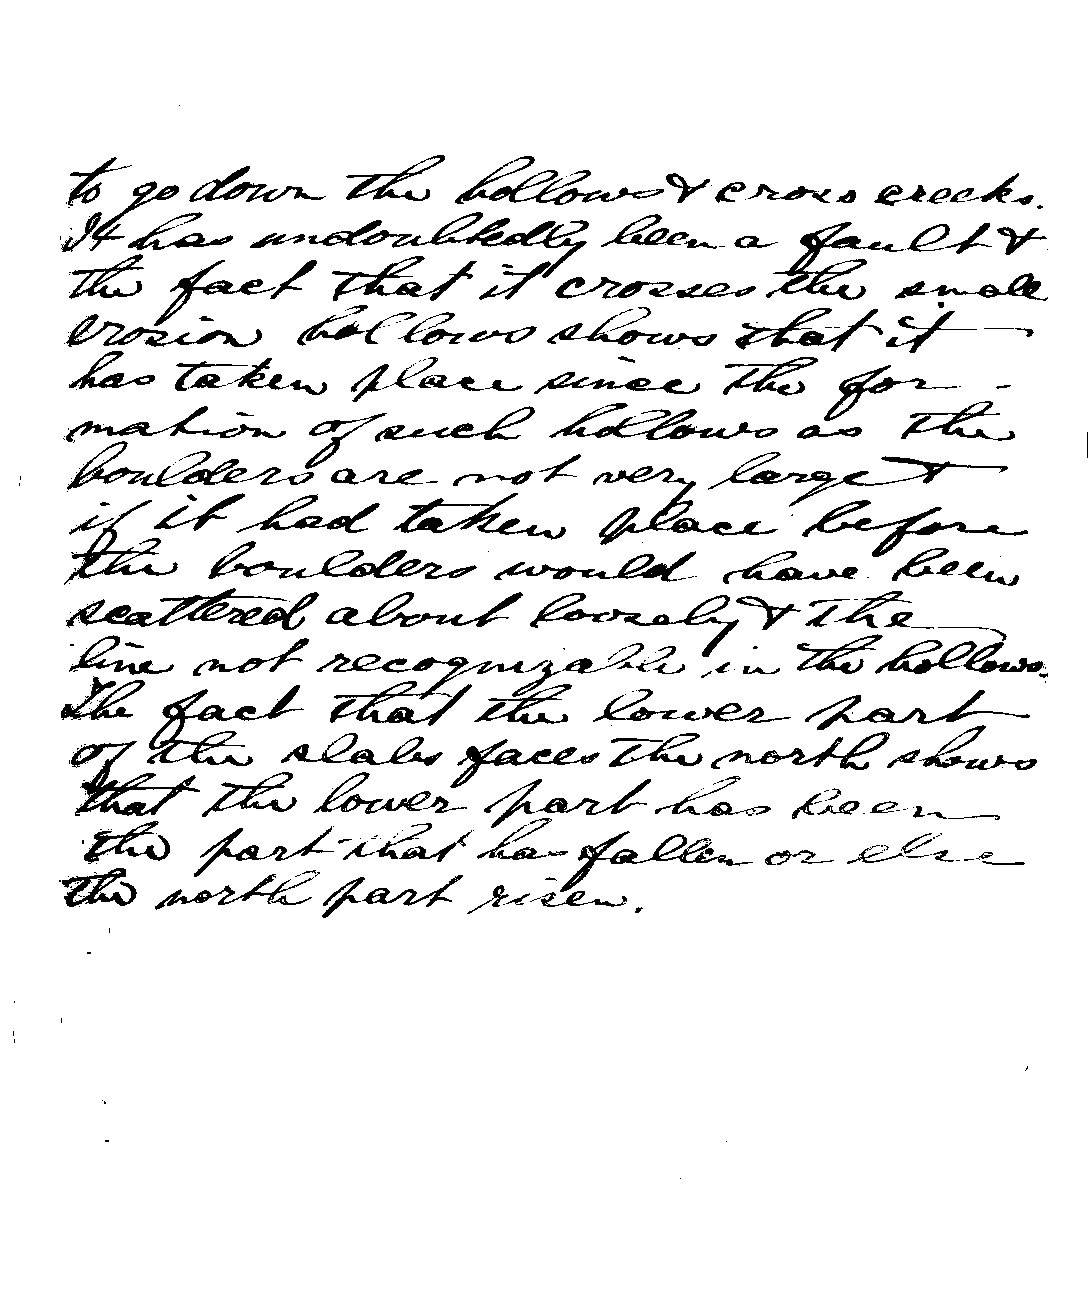 to go down the hollows & cross creeks.
It has undoubtedly been a fault &
the fact that it crosses the small
erosion hollows shows that it
has taken place since the for-
mation of such hollows as the
boulders are not very large &
if it had taken place before
the boulders would have been
scattered about loosely & the
line not recognizable in the hollows.
The fact that the lower part
of the slabs faces the north shows
that the lower part has been
the part that has fallen or else
the north part risen.